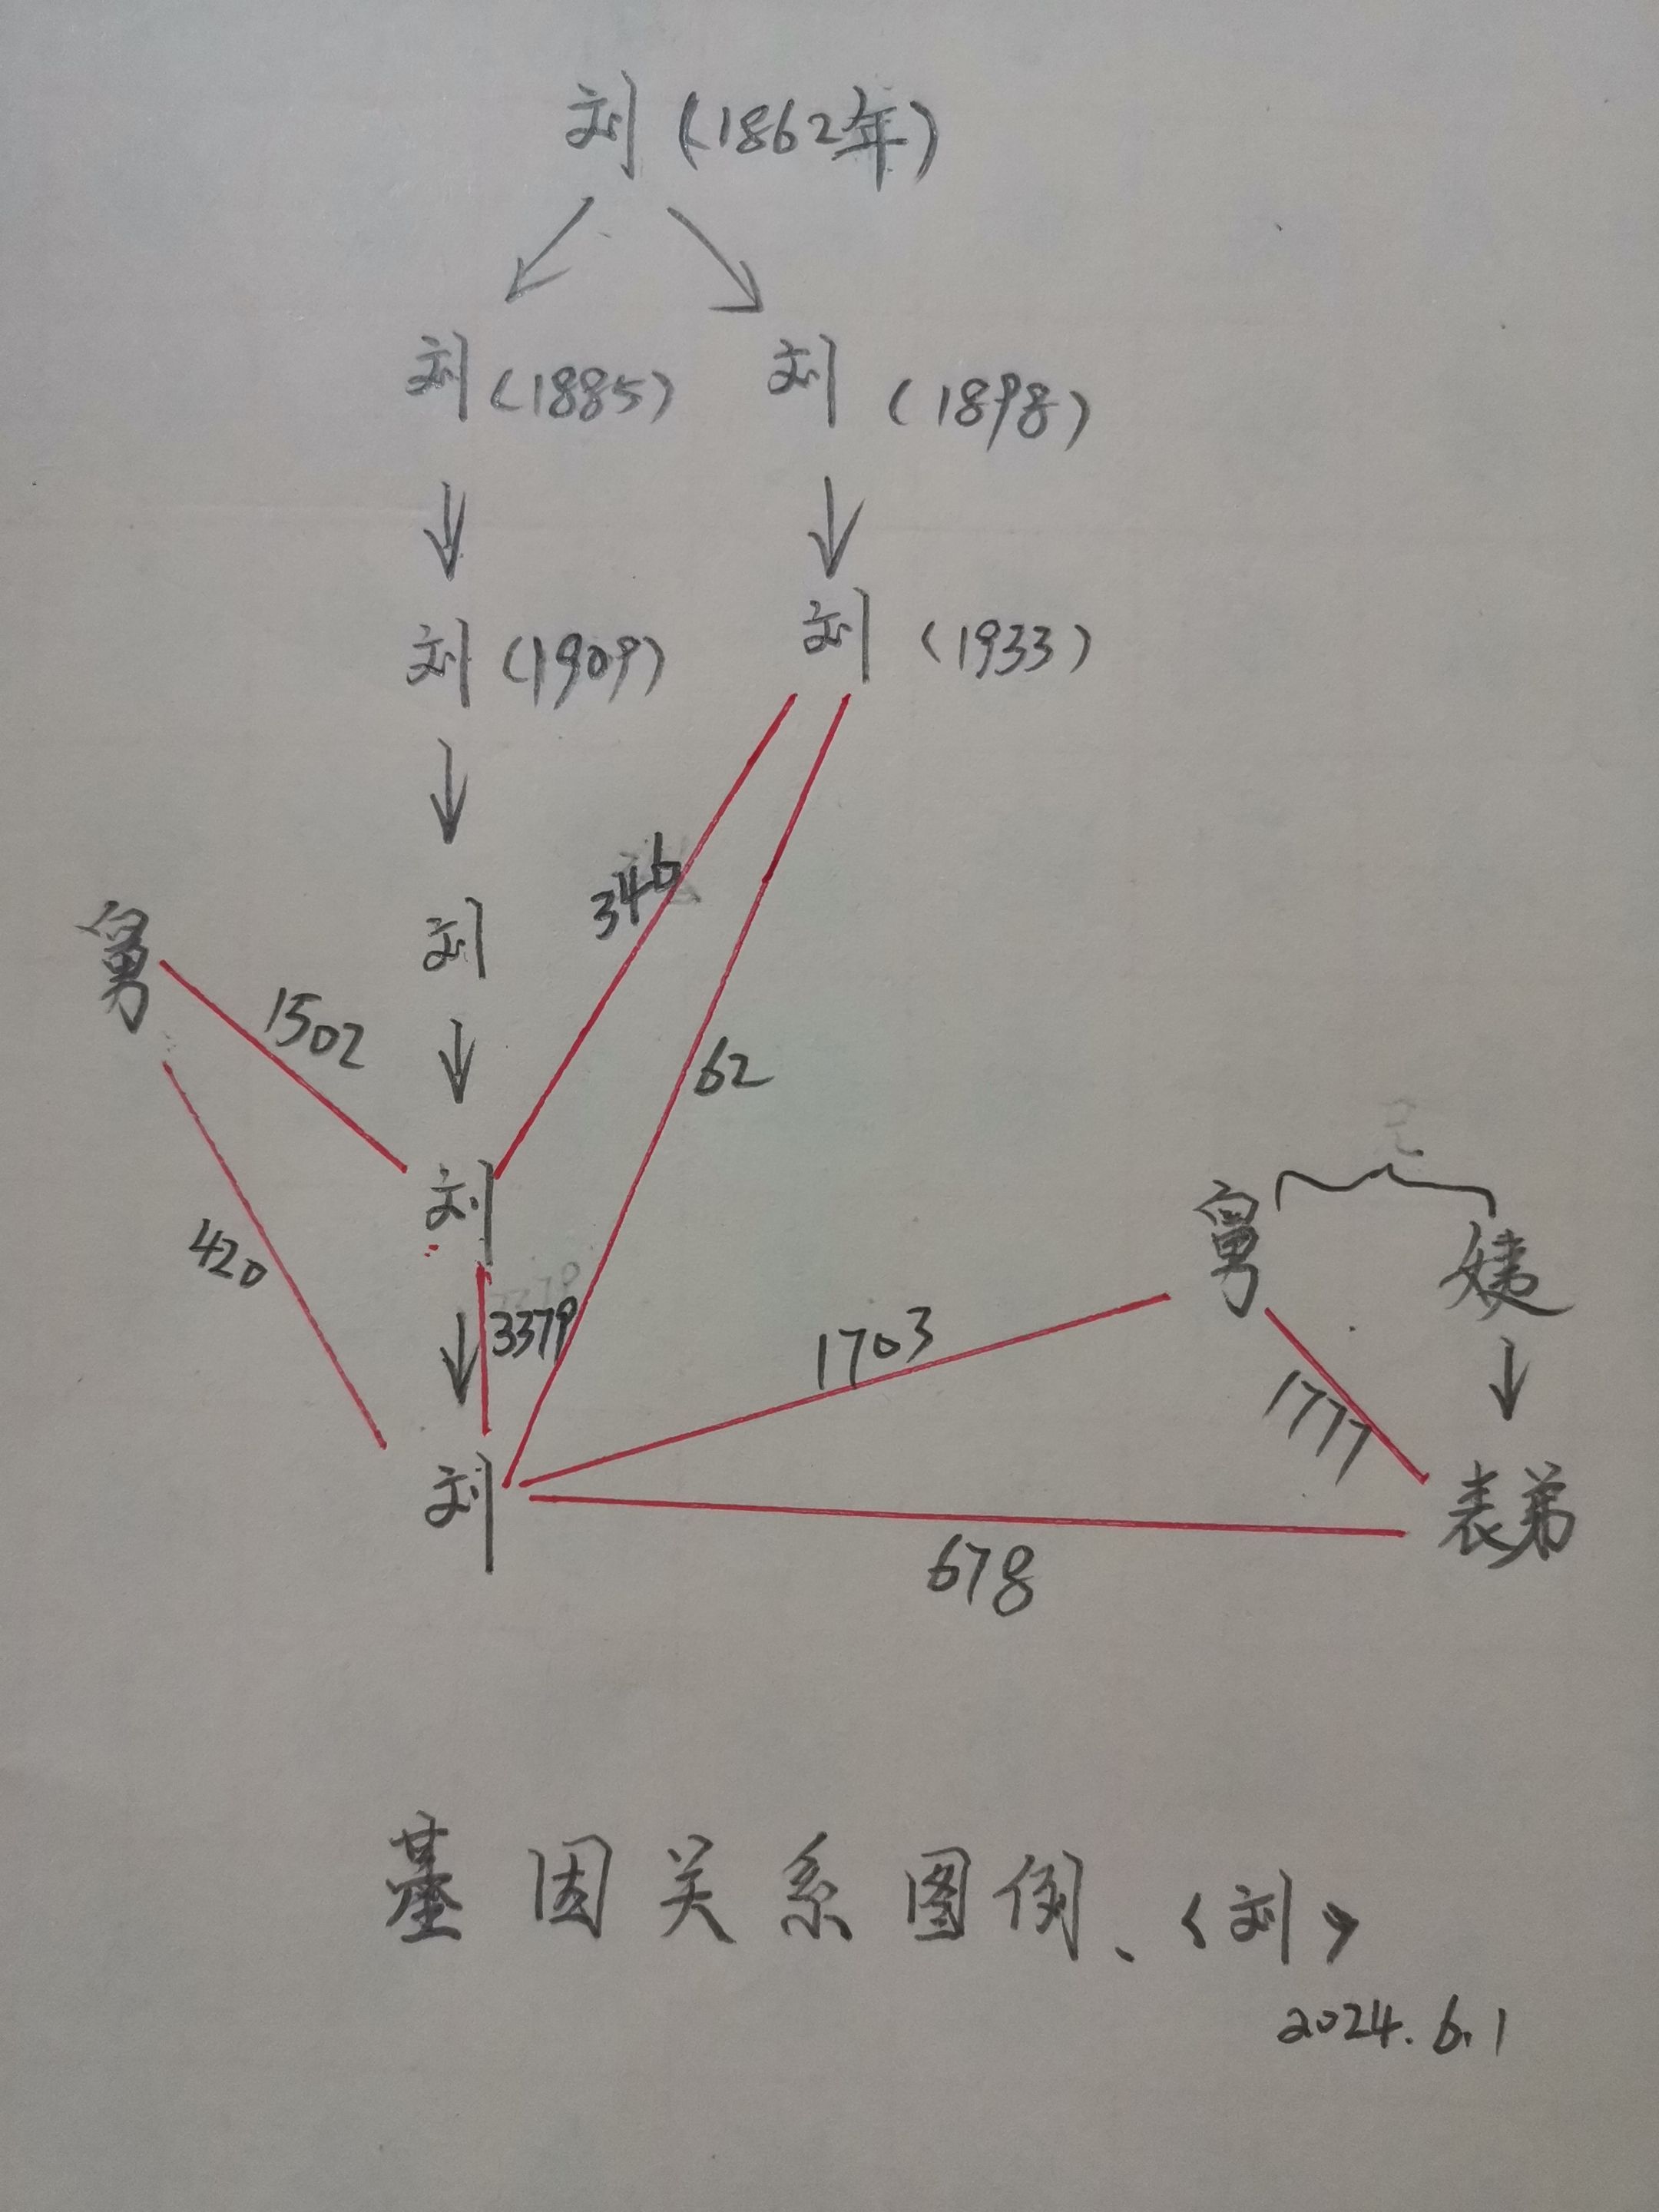 刘(1862年)
刘(1885)
刘(1898)
刘(1909)
刘(1933)
346
刘
舅
1502
62
刘
舅
姨
420
3379
1703
1777
刘
表弟
678
基因关系图例、<刘>
2024.6.1